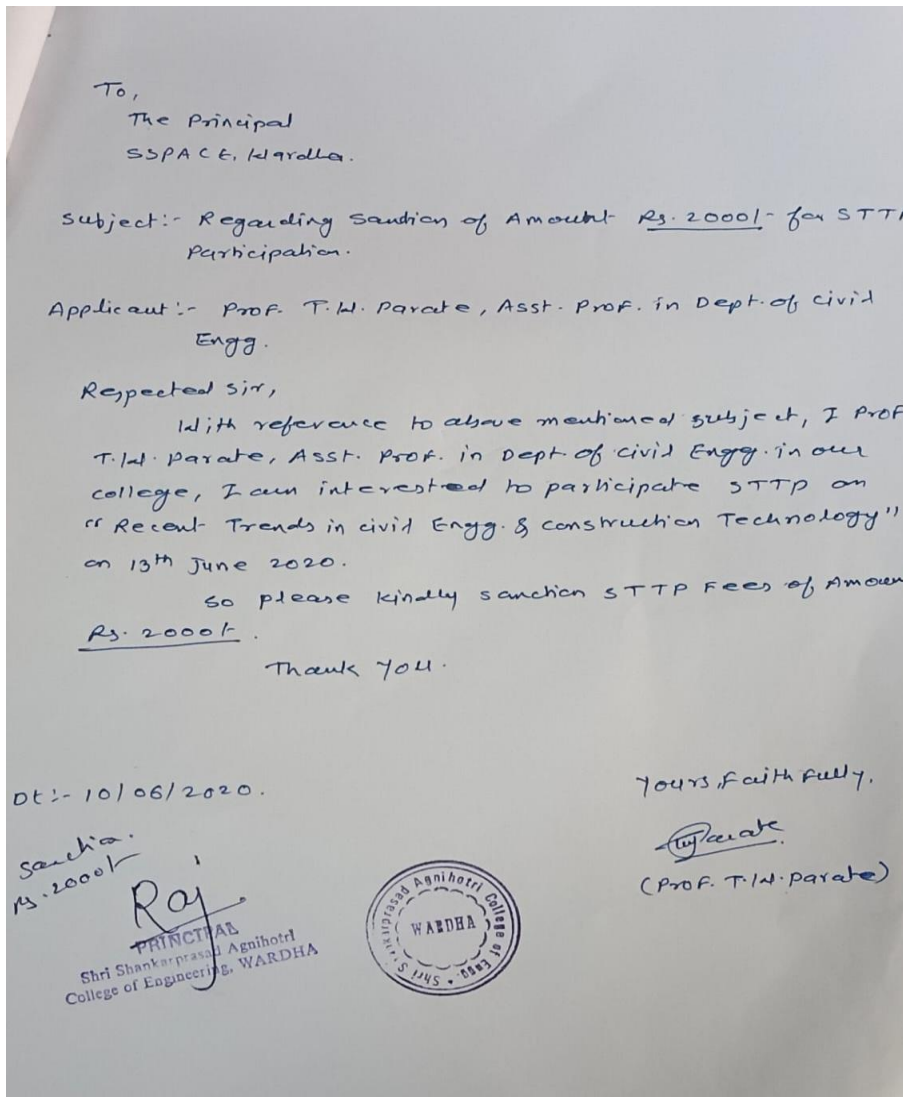 To,
The Principal
SSPACE, Wardha.
Subject:- Regarding Sanction of Amount Rs. 2000/- for STTP
Participation.
Applicant:- Prof. T.W. Parate, Asst. Prof. in Dept. of civil
Engg.
Respected Sir,
With reference to above mentioned subject, I Prof
T.W. Parate, Asst. Prof. in Dept. of civil Engg. in our
college, I am interested to participate STTP on
"Recent Trends in civil Engg. & construction Technology"
on 13th June 2020.
So please kindly sanction STTP Fees of Amoun
Rs. 2000/-.
Thank You.
Dt:- 10/06/2020.
Yours Faithfully,
Sanction.
Rs. 2000/-
Parate
(Prof. T.W. Parate)
Raj
PRINCIPAL
Shri Shankarprasad Agnihotri
College of Engineering, WARDHA
Agnihotri College of Engg. • Shri
WARDHA